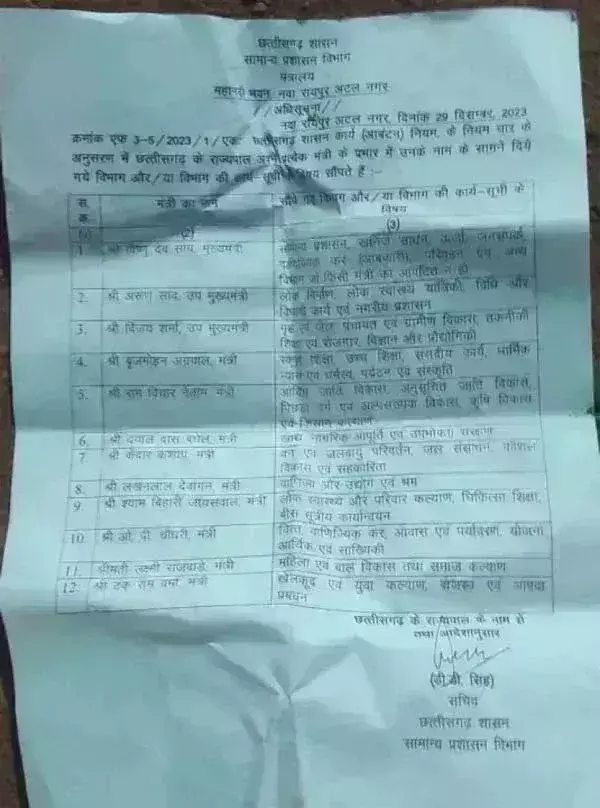 छत्तीसगढ़ शासन
सामान्य प्रशासन विभाग
मंत्रालय
महानदी भवन, नवा रायपुर अटल नगर
//अधिसूचना//
नवा रायपुर अटल नगर, दिनांक 29 दिसम्बर, 2023
क्रमांक एफ 3-5/2023/1/एकः छत्तीसगढ़ शासन कार्य (आबंटन) नियम, के नियम चार के
अनुसरण में छत्तीसगढ़ के राज्यपाल प्रत्येक मंत्री के प्रभार में उनके नाम के सामने दिये
गये विभाग और/या विभाग की कार्य-सूची के विषय सौंपते हैं :-
स. क्र.
मंत्री का नाम
सौंपे गए विभाग और/या विभाग की कार्य-सूची के
विषय
(2) (3)
1. श्री विष्णु देव साय, मुख्यमंत्री
सामान्य प्रशासन, खनिज साधन, ऊर्जा, जनसंपर्क,
वाणिज्यिक कर (आबकारी), परिवहन एवं अन्य
विभाग जो किसी मंत्री को आबंटित न हो
2. श्री अरुण साव, उप मुख्यमंत्री
लोक निर्माण, लोक स्वास्थ्य यांत्रिकी, विधि और
विधायी कार्य एवं नगरीय प्रशासन
3. श्री विजय शर्मा, उप मुख्यमंत्री
गृह एवं जेल, पंचायत एवं ग्रामीण विकास, तकनीकी
शिक्षा एवं रोजगार, विज्ञान और प्रौद्योगिकी
4. श्री बृजमोहन अग्रवाल, मंत्री
स्कूल शिक्षा, उच्च शिक्षा, संसदीय कार्य, धार्मिक
न्यास एवं धर्मस्व, पर्यटन एवं संस्कृति
5. श्री राम विचार नेताम, मंत्री
आदिम जाति विकास, अनुसूचित जाति विकास,
पिछड़ा वर्ग एवं अल्पसंख्यक विकास, कृषि विकास
एवं किसान कल्याण
6. श्री दयाल दास बघेल, मंत्री
खाद्य नागरिक आपूर्ति एवं उपभोक्ता संरक्षण
7. श्री केदार कश्यप, मंत्री
वन एवं जलवायु परिवर्तन, जल संसाधन, कौशल
विकास एवं सहकारिता
8. श्री लखनलाल देवांगन, मंत्री
वाणिज्य और उद्योग एवं श्रम
9. श्री श्याम बिहारी जायसवाल, मंत्री
लोक स्वास्थ्य और परिवार कल्याण, चिकित्सा शिक्षा,
बीस सूत्रीय कार्यान्वयन
10. श्री ओ. पी. चौधरी, मंत्री
वित्त, वाणिज्यिक कर, आवास एवं पर्यावरण, योजना
आर्थिक एवं सांख्यिकी
11. श्रीमती लक्ष्मी राजवाड़े, मंत्री
महिला एवं बाल विकास तथा समाज कल्याण
12. श्री टंक राम वर्मा, मंत्री
खेलकूद एवं युवा कल्याण, राजस्व एवं आपदा
प्रबंधन
छत्तीसगढ़ के राज्यपाल के नाम से
तथा आदेशानुसार
(डी.डी. सिंह)
सचिव
छत्तीसगढ़ शासन
सामान्य प्रशासन विभाग